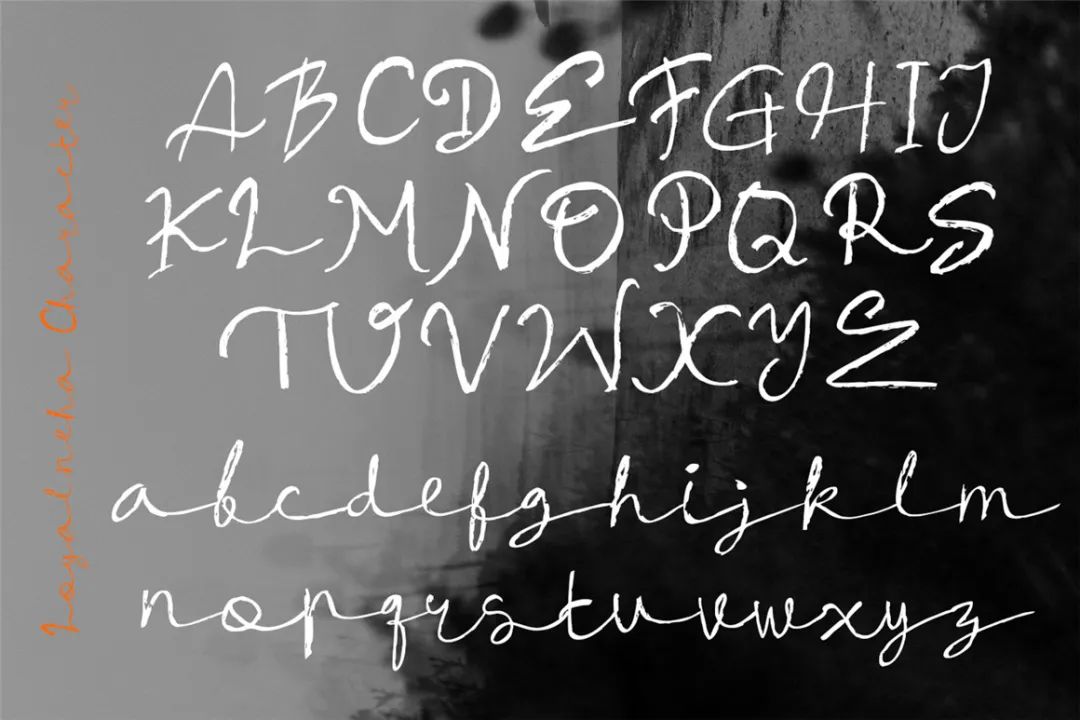 Loyalneha Character
ABCDEFGHIJ
KLMNOPQRS
TUVWXYZ
abcdefghijklm
nopqrstuvwxyz